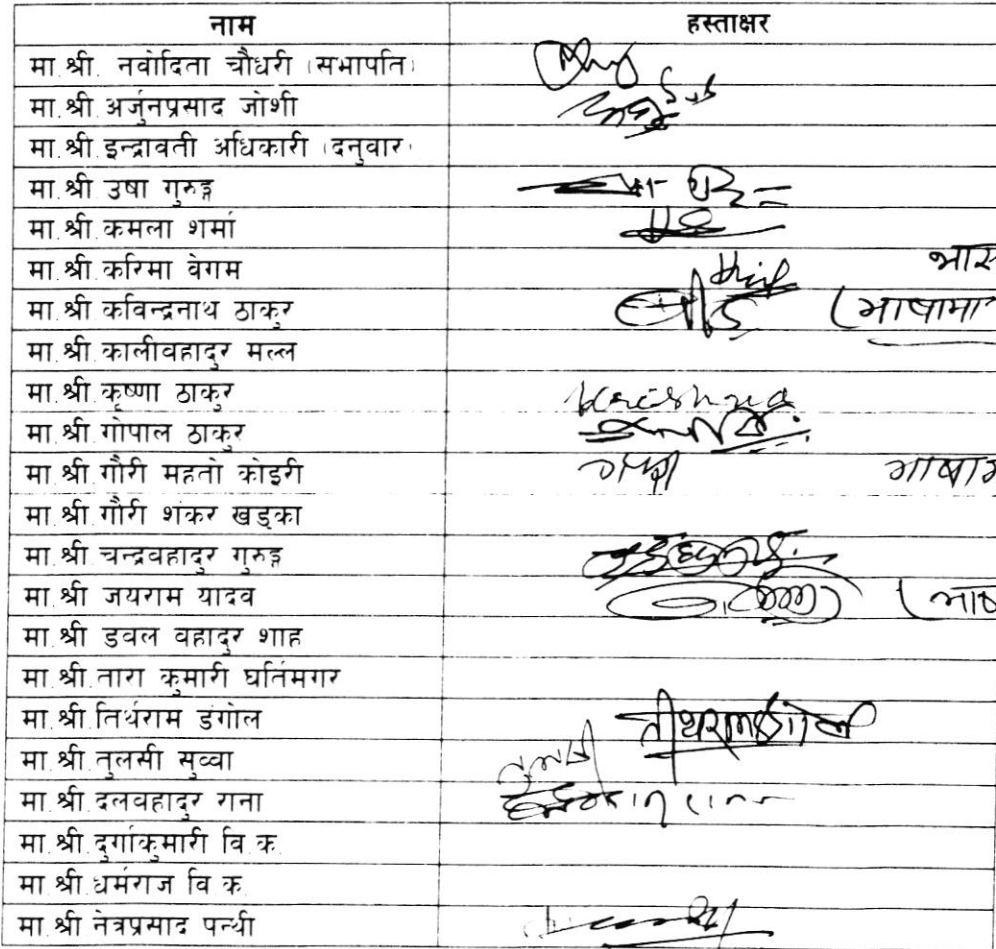 नाम हस्ताक्षर
मा.श्री. नवोदिता चौधरी (सभापति)
मा.श्री.अर्जुनप्रसाद जोशी
मा.श्री.इन्द्रावती अधिकारी (दनुवार)
मा.श्री उषा गुरुङ्ग
मा.श्री.कमला शर्मा
मा.श्री.करिमा वेगम
मा.श्री.कविन्द्रनाथ ठाकुर (भाषामा
मा.श्री.कालीवहादुर मल्ल
मा.श्री.कृष्णा ठाकुर Krishna
मा.श्री.गोपाल ठाकुर
मा.श्री.गौरी महतो कोइरी
मा.श्री.गौरी शंकर खड्का
मा.श्री.चन्द्रवहादुर गुरुङ्ग
मा.श्री जयराम यादव
मा.श्री डवल वहादुर शाह
मा.श्री.तारा कुमारी घर्तिमगर
मा.श्री.तिर्थराम डंगोल
मा.श्री.तुलसी सुव्वा तुलसी
मा.श्री.दलवहादुर राना
मा.श्री.दुर्गाकुमारी वि.क.
मा.श्री.धर्मराज वि.क.
मा.श्री नेत्रप्रसाद पन्थी